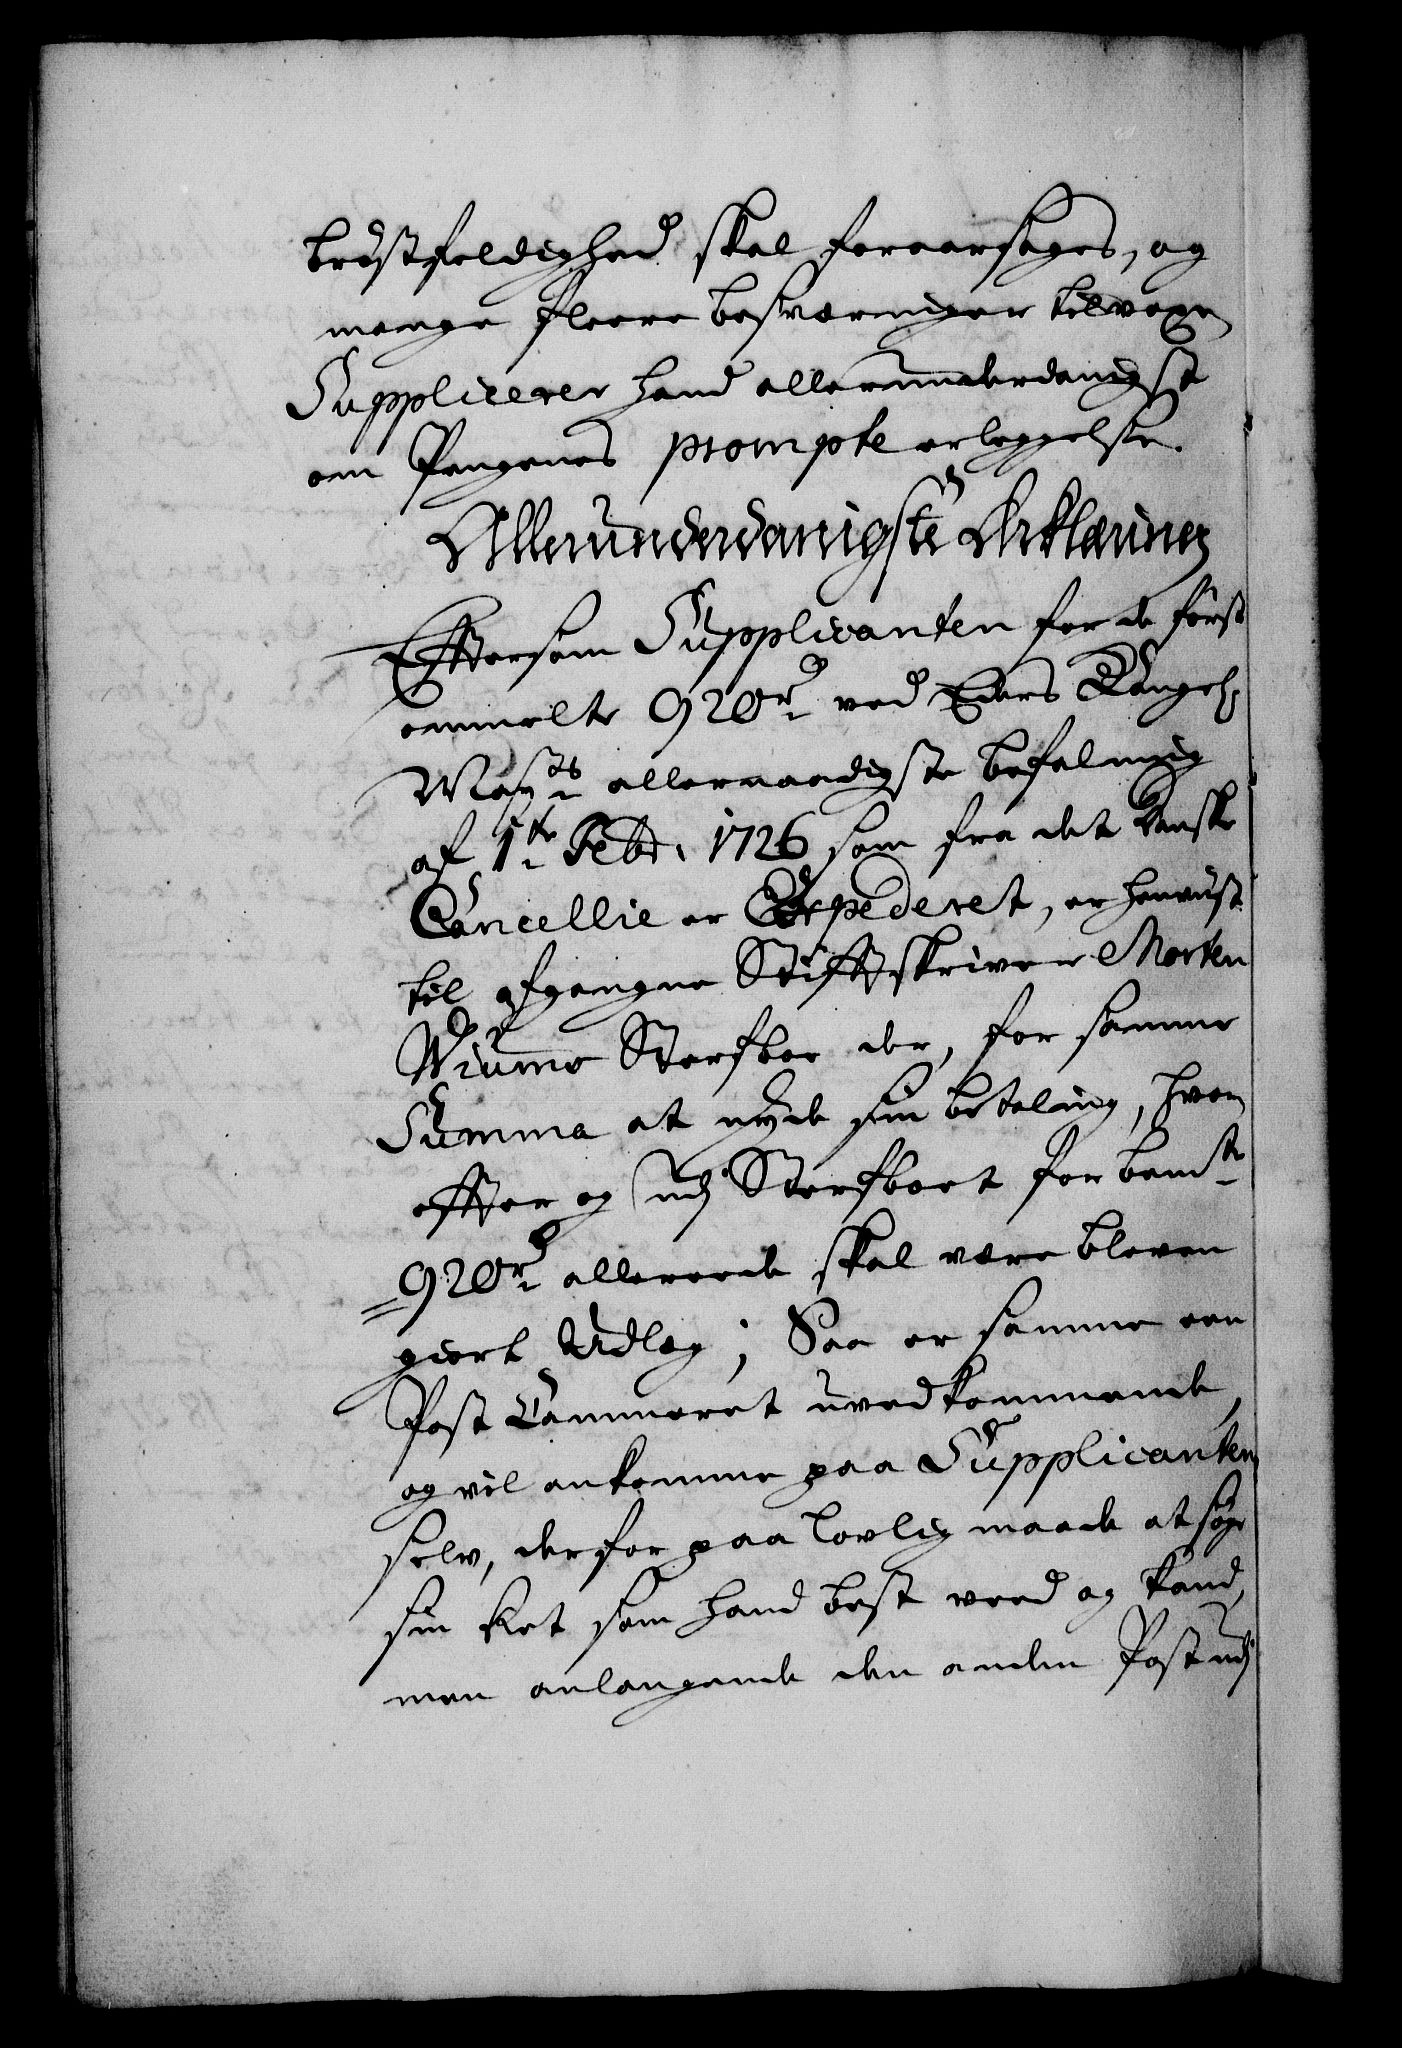 brøstfeldighed skal foraarsages, og
mange fleere besværninger tilvoxe,
Supplicerer hand allerunderdanigst
om Pengenes prompte erleggelse.
Allerunderdanigste Erklæring
Eftersom Supplicanten for de først
ommelte 920 rd ved Eders Kongel:
Mayts allernaadigste befaling
af 1te Febr. 1726 som fra det Danske
Cancellie er Expederet, er henvist
til afgangne Stiftskriver Morten
Wiums Sterfboe der, for samme
Summa at nyde sin betaling, hvor
efter og udj Sterfboet for bemte
920 rd allereede skal være bleven
giort Udleg; Saa er samme een
Post Cammeret uvedkommende,
og vil ankomme paa Supplicanten
selv, derfor paa lovlig maade at søge
sin Ret som hand best veed og kand,
men anlangende den anden Post udj